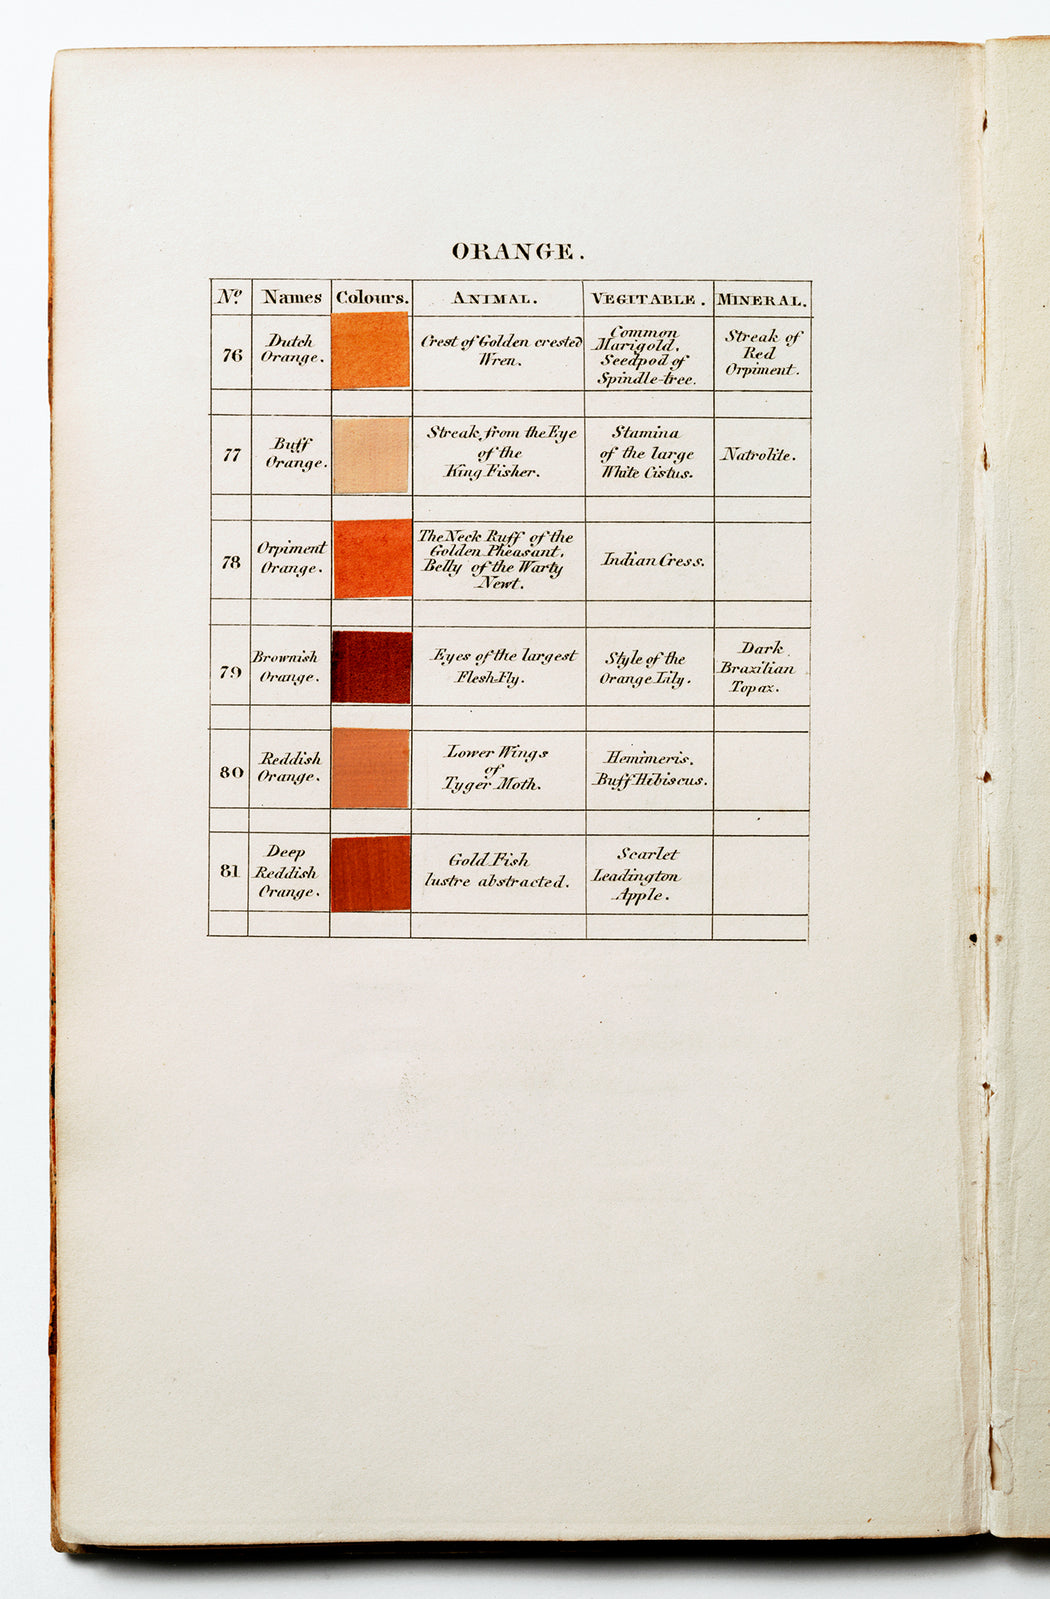 ORANGE.
No. Names Colours. ANIMAL. VEGITABLE. MINERAL.
76
Dutch
Orange.
Crest of Golden crested
Wren.
Common
Marigold.
Seedpod of
Spindle-tree.
Streak of
Red
Orpiment.
77
Buff
Orange.
Streak from the Eye
of the
King Fisher.
Stamina
of the large
White Cistus.
Natrolite.
78
Orpiment
Orange.
The Neck Ruff of the
Golden Pheasant,
Belly of the Warty
Newt.
Indian Cress.
79
Brownish
Orange.
Eyes of the largest
Flesh Fly.
Style of the
Orange Lily.
Dark
Brazilian
Topax.
80
Reddish
Orange.
Lower Wings
of
Tyger Moth.
Hemimeris.
Buff Hibiscus.
81
Deep
Reddish
Orange.
Gold Fish
lustre abstracted.
Scarlet
Leadington
Apple.